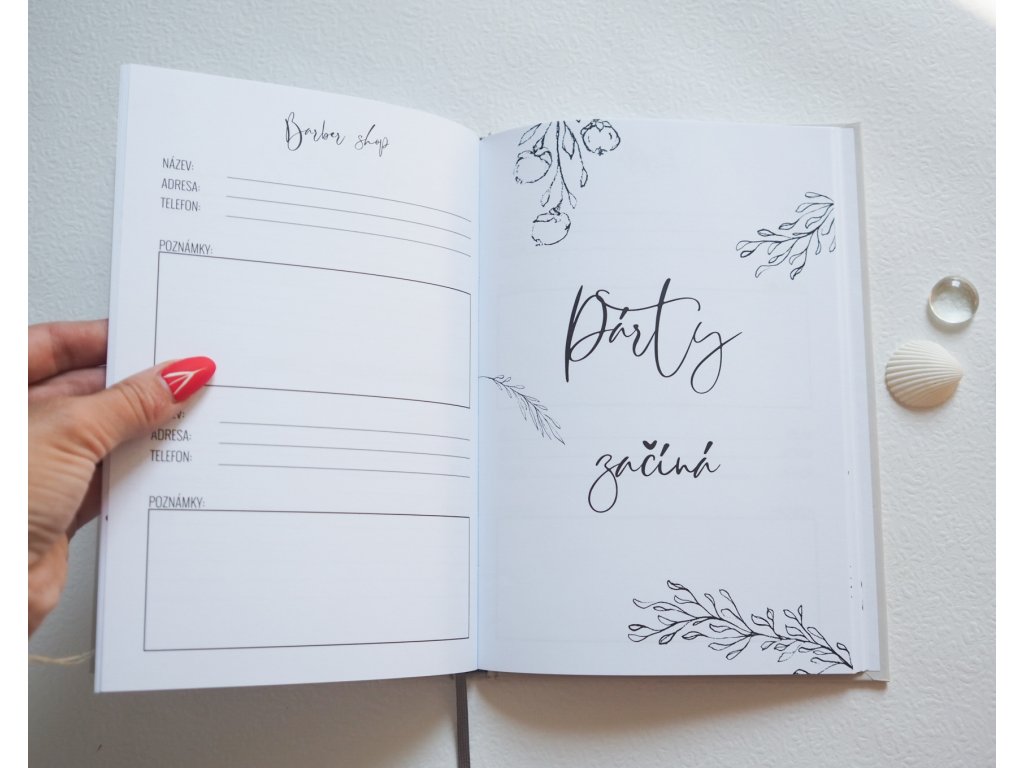 Barber shop
NÁZEV:
ADRESA:
TELEFON:
POZNÁMKY:
ADRESA:
TELEFON:
POZNÁMKY:
Párty
začíná